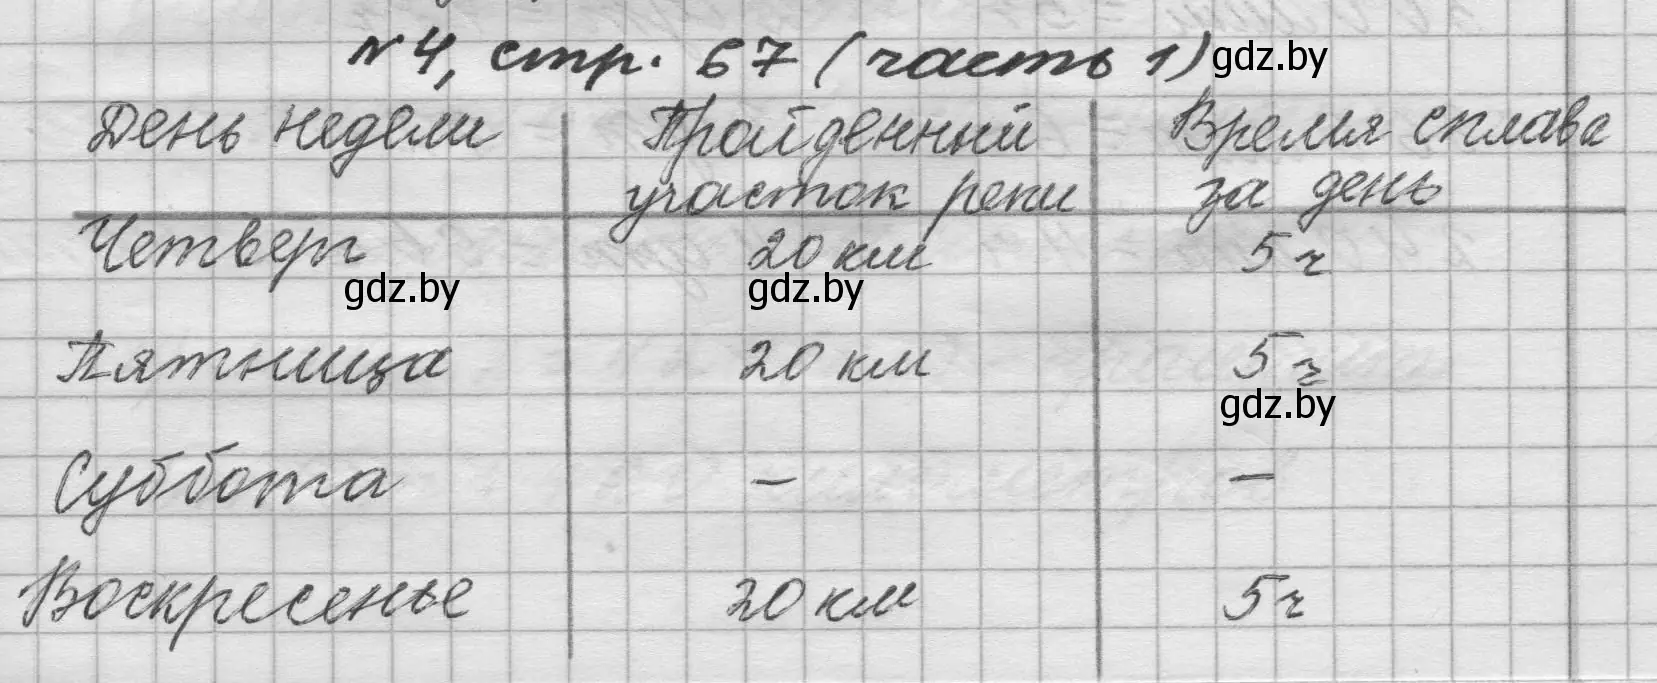 №4, стр. 67 (часть 1) gdz.by
День недели Пройденный участок реки Время сплава за день
Четверг 20 км 5 ч
gdz.by gdz.by
Пятница 20 км 5 ч
gdz.by
Суббота – –
Воскресенье 20 км 5 ч